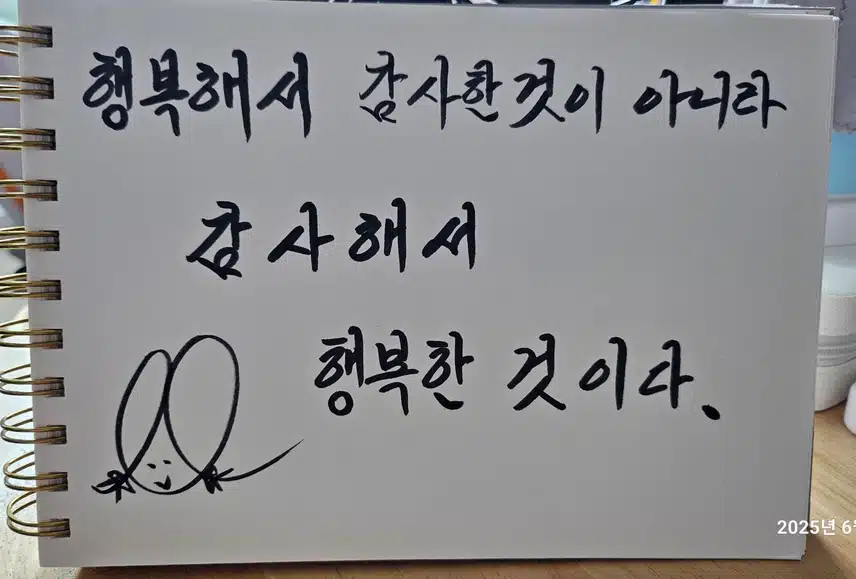 행복해서 감사한것이 아니라
감사해서
행복한 것이다.
2025년 6